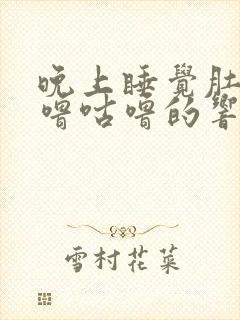 晚上睡覺肚
嚕咕嚕的響
雪村花菜